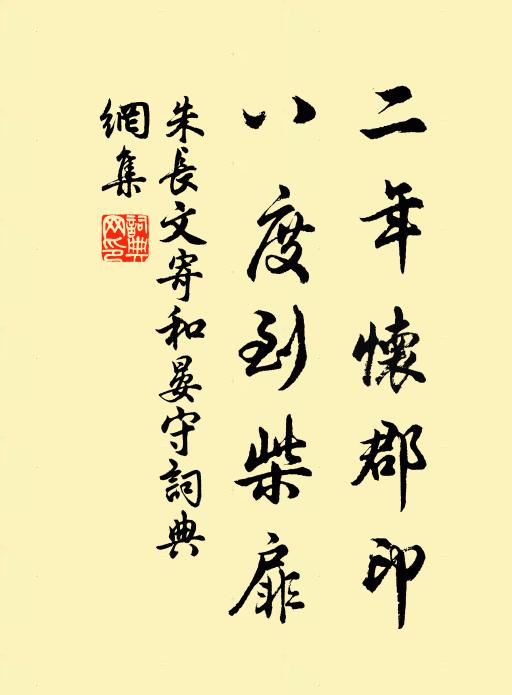 二年懷郡印
八度到柴扉
朱長文寄和晏守詞典
網集
詞典網印